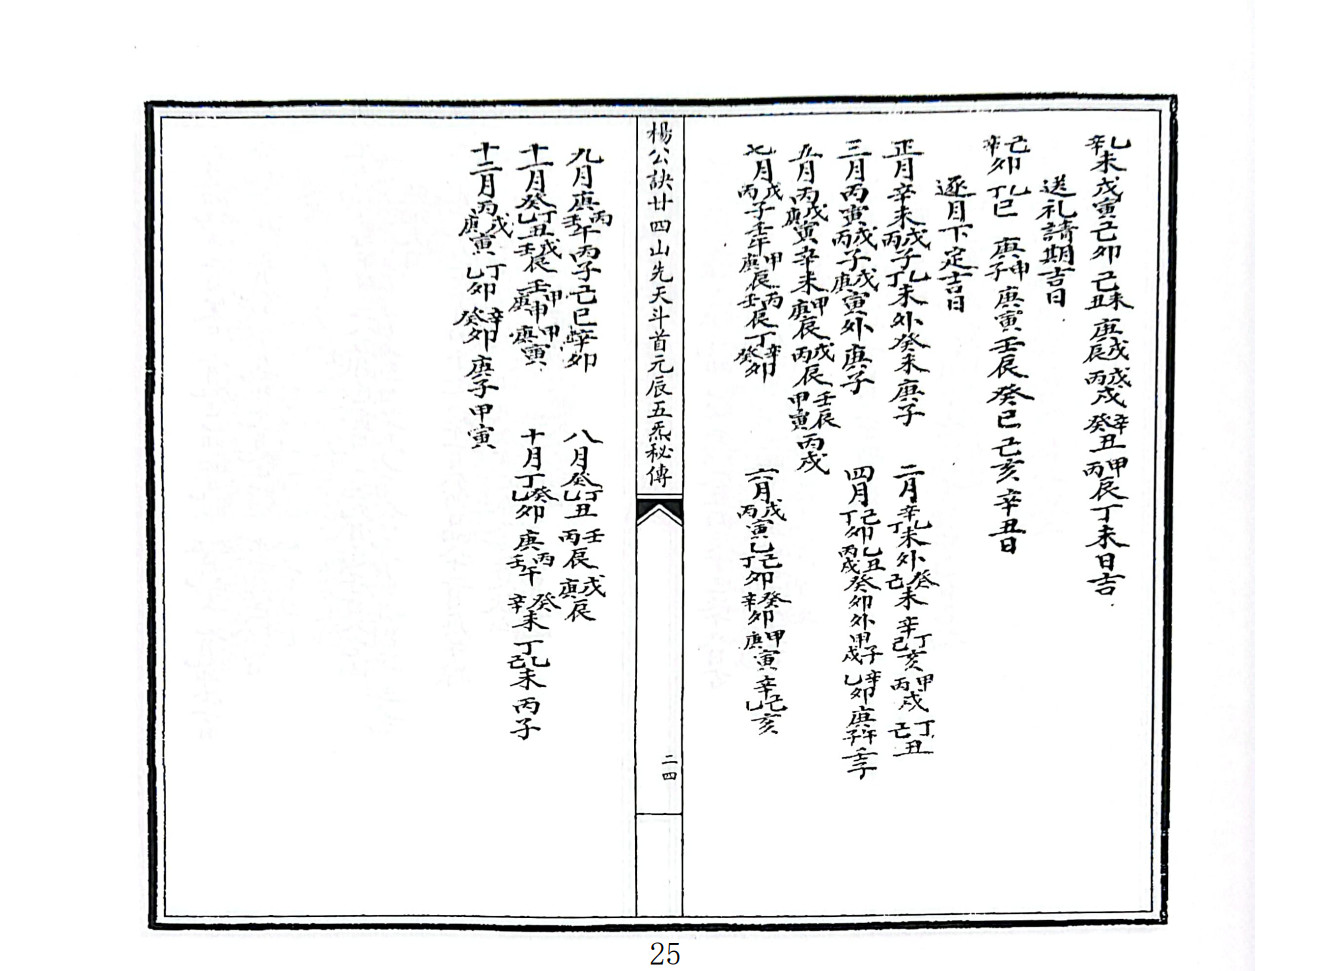 乙辛未戊寅己卯己丑未庚戊辰丙戊戌癸辛丑丙甲辰丁未日吉
送礼請期吉日
辛己卯丁乙巳庚子申庚寅壬辰癸巳己亥辛丑日
逐月下定吉日
正月辛未丙戊子丁乙未外癸未庚子
二月辛乙丁未外己癸未辛丁己亥丙甲戌己丁丑
三月丙寅丙戊子庚戊寅外庚子
四月丁己卯乙丑丙戌癸卯外甲子戌乙辛卯庚午子壬子
五月丙戊庚寅辛未庚甲辰丙戊辰壬辰甲寅丙戌
六月丙戊寅乙己丁卯辛癸卯庚甲寅辛己乙亥
七月丙戊子壬午庚甲辰壬丙辰丁辛癸卯
楊公訣廿四山先天斗首元辰五炁秘傳
二四
八月癸丁乙丑丙壬辰庚戊辰
九月庚丙壬午丙子己巳辛卯
十月丁癸乙卯庚丙壬午辛癸未丁乙己未丙子
十一月癸丁乙丑壬戊辰壬甲庚申庚甲寅
十二月丙戊庚寅乙丁卯癸辛卯庚子甲寅
25